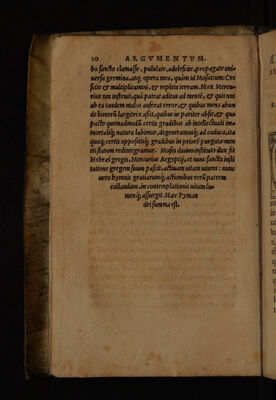 10 ARGVMENTVM.
bo sancto clamasse, pululate, adolescite, propagate uni-
uersa germina, atq; opera mea, quàm id Mosaicum: Cre
scite & multiplicamini, & replete terram. Mox Mercu-
rius nos instruit, quà pateat aditus ad mentē, & quis nos
ab ea tandem malus auferat error, & quibus mens abun
de bonorū largitrix assit, quibus ue pariter absit, & quo
pacto quemadmodū certis gradibus ab intellectuali im-
mortaliq; natura labimur, degeneramusq; ad caduca, ita
quoq; certis oppositisq; gradibus in priorē purgatæ men
tis statum redintegramur. Moses diuino instituto dux fit
Hebræi gregis, Mercurius Aegyptij, et nunc sancto insti
tutione gregem suum pascit, actiuam uitam uiuens: nunc
uero hymnis gratiarumq; actionibus rerū patrem
collaudans, in contemplationis uitam lu-
menq; assurgit. Hæc Pyman
dri summa est.